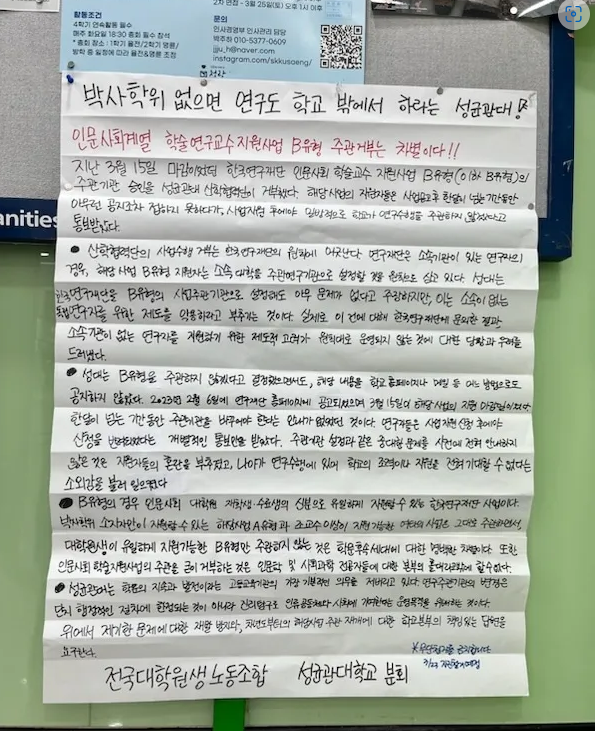 활동조건
4학기 연속활동 필수
매주 화요일 18:30 총회 필수 참석
* 총회 장소 : 1학기 율전/2학기 명륜/
방학 중 일정에 따라 율전&명륜 조정
2차 면접 - 3월 25일(토) 오후 1시 이후
문의
인사경영부 인사관리 담당
박주하 010-5377-0609
jju_h@naver.com
instagram.com/skkusaeng/
anities
박사학위 없으면 연구도 학교 밖에서 하라는 성균관대!
인문사회계열 학술연구교수지원사업 B유형 주관거부는 차별이다!!
지난 3월 15일 마감이었던 한국연구재단 인문사회 학술연구교수 지원사업 B유형(이하 B유형)의
주관기관 승인을 성균관대 산학협력단이 거부했다. 해당사업의 지원자들은 사업공고후 한달이 넘는 기간동안
아무런 공지조차 접하지 못하다가, 사업지원 후에야 일방적으로 학교가 연구수행을 주관하지 않겠다고
통보받았다.
● 산학협력단의 사업수행 거부는 한국연구재단의 원칙에 어긋난다. 연구재단은 소속기관이 있는 연구자의
경우, 해당 사업 B유형 지원자는 소속 대학을 주관연구기관으로 설정할 것을 원칙으로 삼고 있다. 성대는
한국연구재단을 B유형의 사업주관기관으로 설정해도 아무 문제가 없다고 주장하지만, 이는 소속이 없는
독립연구자를 위한 제도를 악용하라고 부추기는 것이다. 실제로 이 건에 대해 한국연구재단에 문의한 결과
소속기관이 없는 연구자를 지원하기 위한 제도적 고려가 원칙대로 운영되지 않는 것에 대한 당황과 우려를
드러냈다.
● 성대는 B유형을 주관하지 않겠다고 결정했으면서도, 해당 내용을 학교 홈페이지나 메일 등 어느 방법으로도
공지하지 않았다. 2023년 2월 6일에 연구재단 홈페이지에 공고되었으며 3월 15일이 해당사업의 지원 마감일이었다
한달이 넘는 기간동안 주관기관을 바꾸어야 한다는 안내가 없었던 것이다. 연구자들은 사업지원 신청 후에야
신청을 반려되었다는 개별적인 통보만을 받았다. 주관기관 설정과 같은 중대한 문제를 사전에 전혀 안내하지
않은 것은 지원자들의 혼란을 부추겼고, 나아가 연구수행에 있어 학교의 조력이나 지원을 전혀 기대할 수 없다는
소외감을 불러 일으켰다
● B유형의 경우 인문사회 대학원 재학생·수료생의 신분으로 유일하게 지원할 수 있는 한국연구재단 사업이다.
박사학위 소지자만이 지원할 수 있는 해당사업 A유형과 조교수 이상이 지원 가능한 여타의 사업은 그대로 주관하면서,
대학원생이 유일하게 지원가능한 B유형만 주관하지 않는 것은 학문후속세대에 대한 명백한 차별이다. 또한
인문사회 학술지원사업의 주관을 금지 거부하는 것은 인문학 및 사회과학 전공자들에 대한 본부의 홀대라고 밖에 할 수 없다.
● 성균관대는 학문의 지속과 발전이라는 고등교육기관의 가장 기본적인 의무를 저버리고 있다. 연구주관기관의 변경은
단지 행정적인 절차에 한정되는 것이 아니라 진리탐구로 인류공동체와 사회에 기여한다는 운영목적을 위배하는 것이다.
위에서 제기한 문제에 대한 재발 방지와, 차년도부터의 해당사업 주관 재개에 대한 학교본부의 책임 있는 답변을
요구한다.
※무단철거를 금지합니다
전국대학원생노동조합 성균관대학교 분회